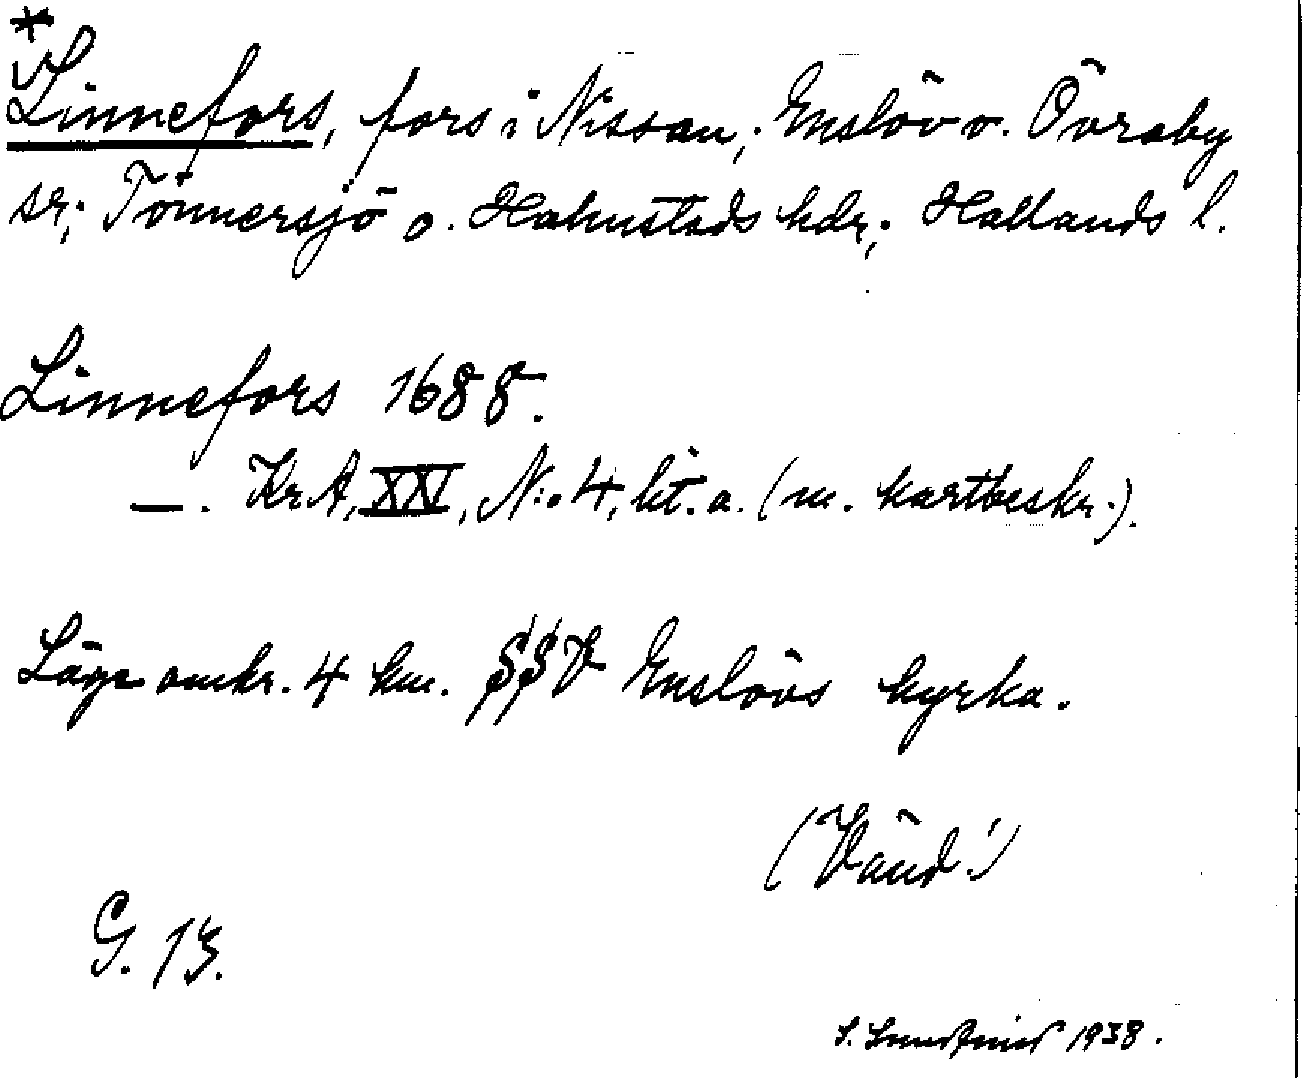 *
Linnefors, fors i Nissan; Enslöv o. Övraby
sr; Tönnersjö o. Halmstads hdr; Hallands l.
Linnefors 1688.
—. Kr A, XXI, N:o 4, lit. a. (m. kartbeskr.).
Läge omkr. 4 km. SSV Enslövs kyrka.
(Vänd!)
G. 13.
S. 1938.